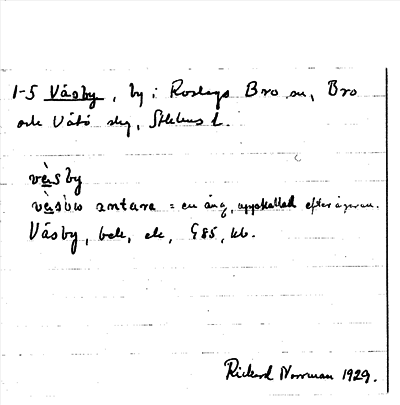 1-5 Väsby, by i Roslags Bro sn, Bro
och Vätö skg, Sthlms l.
väsby
= en äng, uppkallad efter ägaren.
Väsby, bek, ek, G85, kb.
Rickard Norrman 1929.